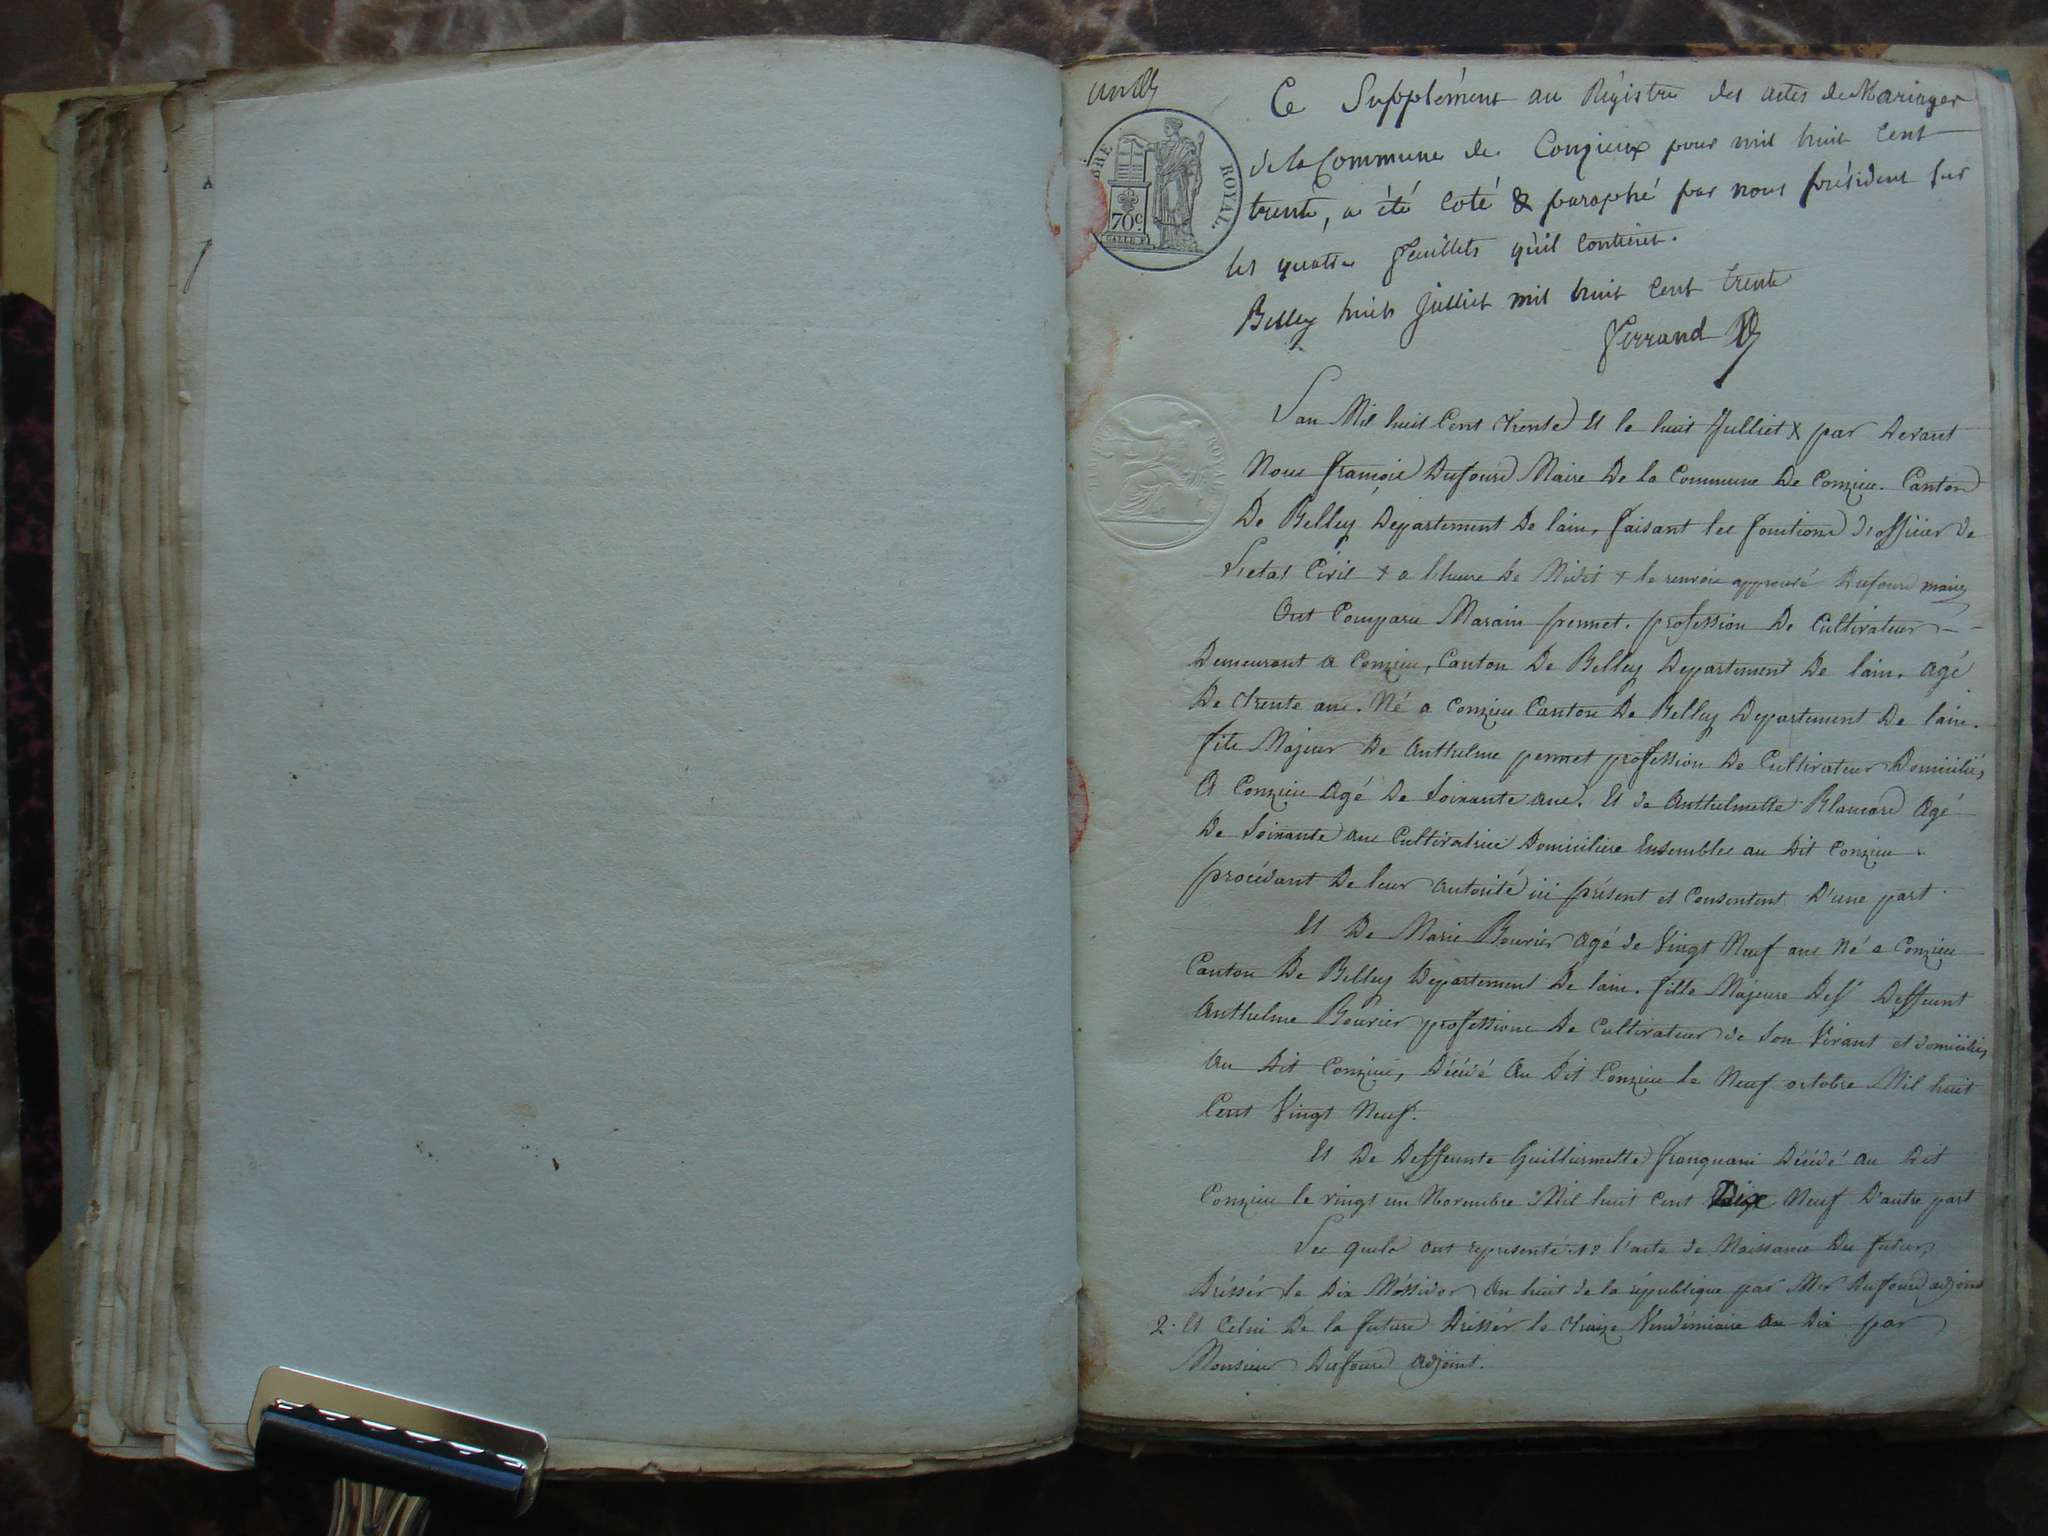 Ce Supplément au Régistre des actes de Mariages
TIMBRE ROYAL.
70c
de la Commune de Conzieux pour mil huit Cent
trente, a été coté & paraphé par nous président sur
les quatre feuillets qu'il contient.
Belley huit Juillet mil huit Cent trente
Ferrand
Lan Mil huit Cent trente Et le huit Julliet x par Devant
Nous françois Dufour Maire De la Commune De Conzieu. Canton
De Belley Département De lain, faisant les fonctions d'officier de
Lietat Civil x a lheure De Midit x le renvoie approuvé Dufour maire
Ont Comparu Marain pennet. profession De Cultivateur
Demeurant a Conzieu, Canton De Belley Departement De lain. agé
De trente ans. Né a Conzieu Canton De Belley Departement De lain.
fils Majeur De Anthelme pennet profession De Cultivateur Domicilié,
A Conzieu Agé De Soixante ans. Et de Anthelmette Blancard Agé
De Soixante ans Cultivatrice Domiciliere Ensembles au Dit Conzieu.
procédant De leur autorité ici présent et Consentent D'une part.
Et De Marie Bouvier agé de Vingt Neuf ans Né a Conzieu
Canton De Belley Département De lain. fille Majeure Def Deffeunt
Anthelme Bouvier profession De Cultivateur de Son Vivant et domicilié
Au Dit Conzieu, Décédé Au Dit Conzieu le Neuf octobre Mil huit
Cent Vingt Neuf.
Et De Deffeunte Guillermette Tranquani Décédé au Dit
Conzieu le vingt un Novembre Mil huit cent Dix Neuf D'autre part
Les quels ont representé 1º l'acte de Naissance Du futur,
Drésser le Dix Méssidor An huit de la république par Mr Dufour adjoint
2. Et Celui De la future Drésser le treize Vendémiaire an Dix par
Monsieur Dufour adjoint.